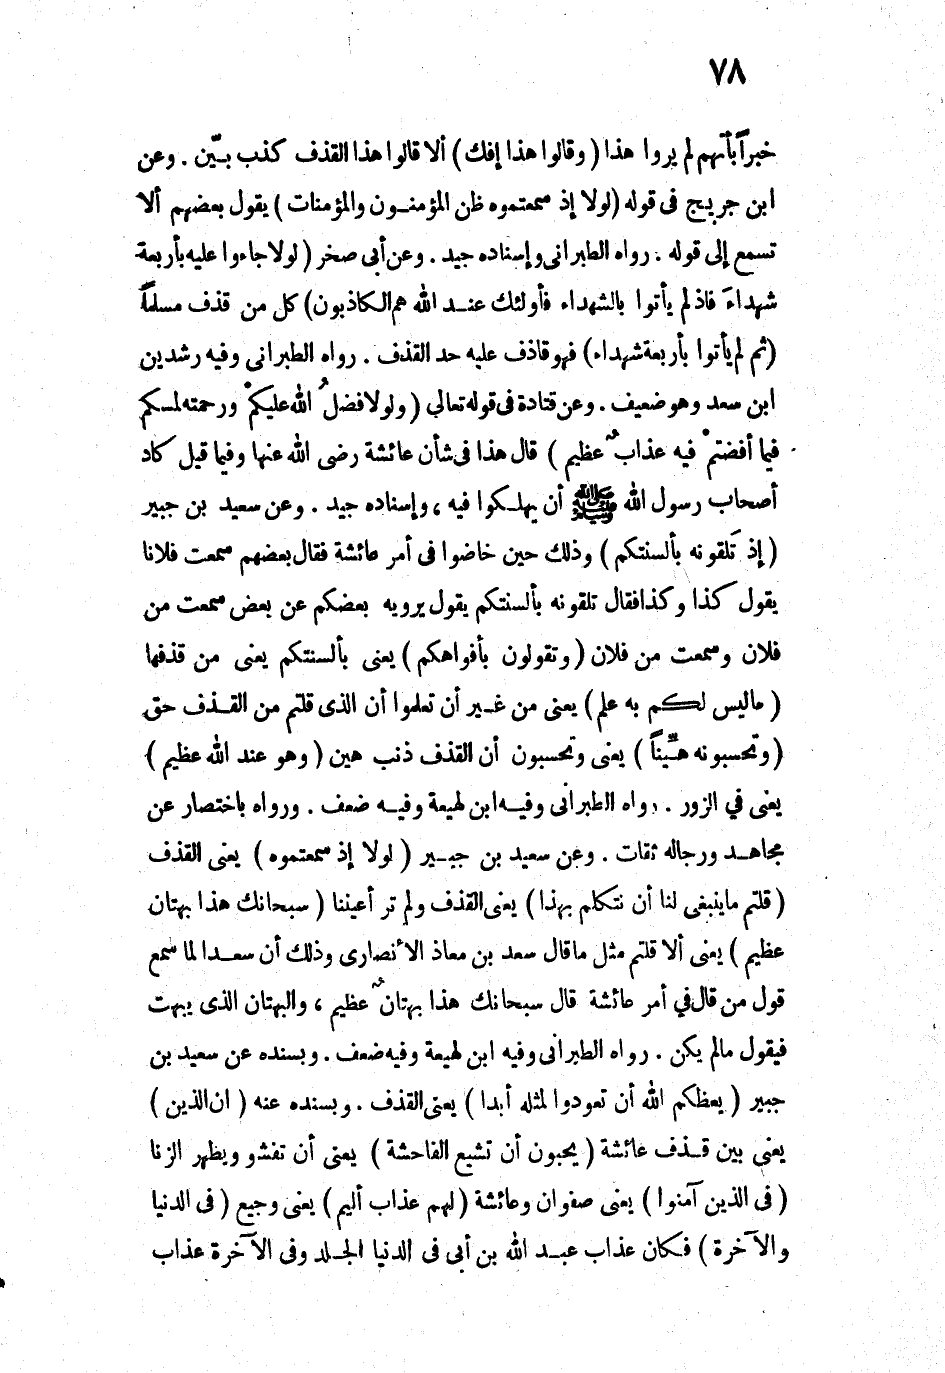 ٧٨
خبراً بأنهم لم يروا هذا ( وقالوا هذا إفك ) ألا قالوا هذا القذف كذب بيّن . وعن
ابن جريج فى قوله ( لولا إذ سمعتموه ظن المؤمنون والمؤمنات ) يقول بعضهم ألا
تسمع إلى قوله . رواه الطبرانى وإسناده جيد . وعن أبى صخر ( لولا جاءوا عليه بأربعة
شهداءَ فاذ لم يأتوا بالشهداء فأولئك عند الله هم الكاذبون ) كل من قذف مسلماً
( ثم لم يأتوا بأربعة شهداء ) فهو قاذف عليه حد القذف . رواه الطبرانى وفيه رشدين
ابن سعد وهو ضعيف . وعن قتادة فى قوله تعالي ( ولولا فضلُ الله عليكمْ ورحمته لمسكم
فيما أفضتمْ فيه عذابٌ عظيم ) قال هذا فى شأن عائشة رضى الله عنها وفيما قيل كاد
أصحاب رسول الله ﷺ أن يهلكوا فيه ، وإسناده جيد . وعن سعيد بن جبير
( إذ تَلقونه بألسنتكم ) وذلك حين خاضوا فى أمر عائشة فقال بعضهم سمعت فلانا
يقول كذا وكذا فقال تلقونه بألسنتكم يقول يرويه بعضكم عن بعض سمعت من
فلان وسمعت من فلان ( وتقولون بأفواهكم ) يعنى بألسنتكم يعنى من قذفها
( ماليس لكم به علم ) يعنى من غير أن تعلموا أن الذى قلتم من القذف حق
( وتحسبونه هيّناً ) يعنى وتحسبون أن القذف ذنب هين ( وهو عند الله عظيم )
يعنى في الزور . رواه الطبرانى وفيه ابن لهيعة وفيه ضعف . ورواه باختصار عن
مجاهد ورجاله ثقات . وعن سعيد بن جبير ( لولا إذ سمعتموه ) يعنى القذف
( قلتم ماينبغى لنا أن نتكلم بهذا ) يعنى القذف ولم تر أعيننا ( سبحانك هذا بهتان
عظيم ) يعنى ألا قلتم مثل ماقال سعد بن معاذ الأنصارى وذلك أن سعدا لما سمع
قول من قال في أمر عائشة قال سبحانك هذا بهتانٌ عظيم ، والبهتان الذى يبهت
فيقول مالم يكن . رواه الطبرانى وفيه ابن لهيعة وفيه ضعف . وبسنده عن سعيد بن
جبير ( يعظكم الله أن تعودوا لمثله أبدا ) يعنى القذف . وبسنده عنه ( ان الذين )
يعنى بين قذف عائشة ( يحبون أن تشيع الفاحشة ) يعنى أن تفشو ويظهر الزنا
( فى الذين آمنوا ) يعنى صفوان وعائشة ( لهم عذاب أليم ) يعنى وجيع ( فى الدنيا
والآخرة ) فكان عذاب عبد الله بن أبى فى الدنيا الجلد وفى الآخرة عذاب